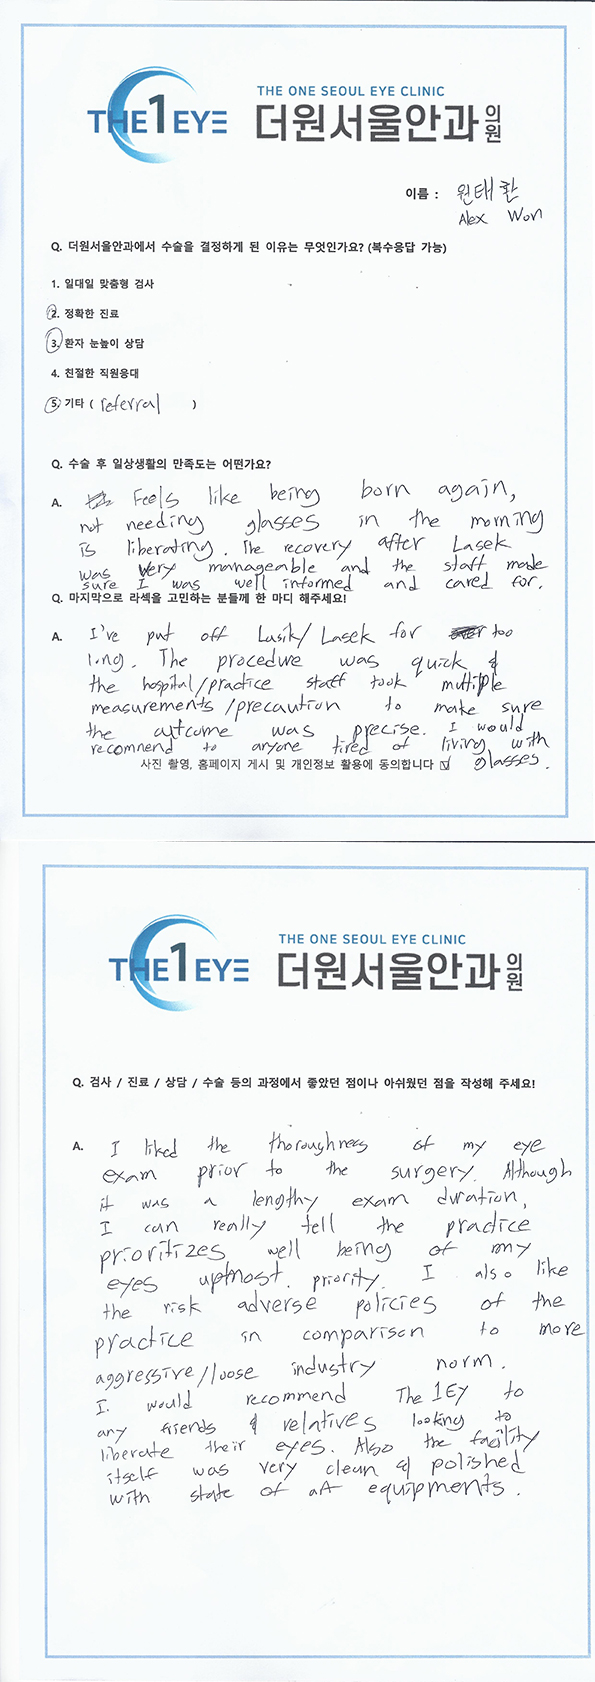 THE 1 EYE
THE ONE SEOUL EYE CLINIC
더원서울안과의원
이름 : 원태환
Alex Won
Q. 더원서울안과에서 수술을 결정하게 된 이유는 무엇인가요? (복수응답 가능)
1. 일대일 맞춤형 검사
2. 정확한 진료
3. 환자 눈높이 상담
4. 친절한 직원응대
5. 기타 ( referral )
Q. 수술 후 일상생활의 만족도는 어떤가요?
A. Feels like being born again,
not needing glasses in the morning
is liberating. The recovery after Lasek
was very manageable and the staff made
sure I was well informed and cared for.
Q. 마지막으로 라섹을 고민하는 분들께 한 마디 해주세요!
A. I've put off Lasik/Lasek for too
long. The procedure was quick &
the hospital/practice staff took multiple
measurements/precaution to make sure
the outcome was precise. I would
recommend to anyone tired of living with
glasses.
사진 촬영, 홈페이지 게시 및 개인정보 활용에 동의합니다 ☑
THE 1 EYE
THE ONE SEOUL EYE CLINIC
더원서울안과의원
Q. 검사 / 진료 / 상담 / 수술 등의 과정에서 좋았던 점이나 아쉬웠던 점을 작성해 주세요!
A. I liked the thoroughness of my eye
exam prior to the surgery. Although
it was a lengthy exam duration,
I can really tell the practice
prioritizes well being of my
eyes upmost. priority. I also like
the risk adverse policies of the
practice in comparison to more
aggressive/loose industry norm.
I would recommend The 1Ey to
any friends & relatives looking to
liberate their eyes. Also the facility
itself was very clean & polished
with state of art equipments.